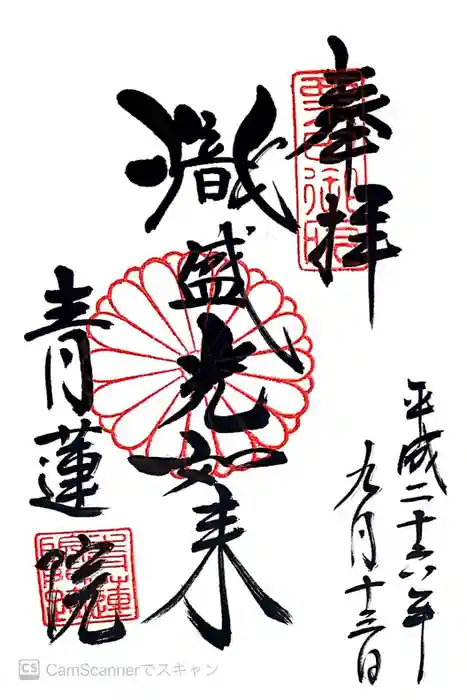 奉拝
熾盛光如来
青蓮院
平成二十六年
九月十三日
CS CamScannerでスキャン